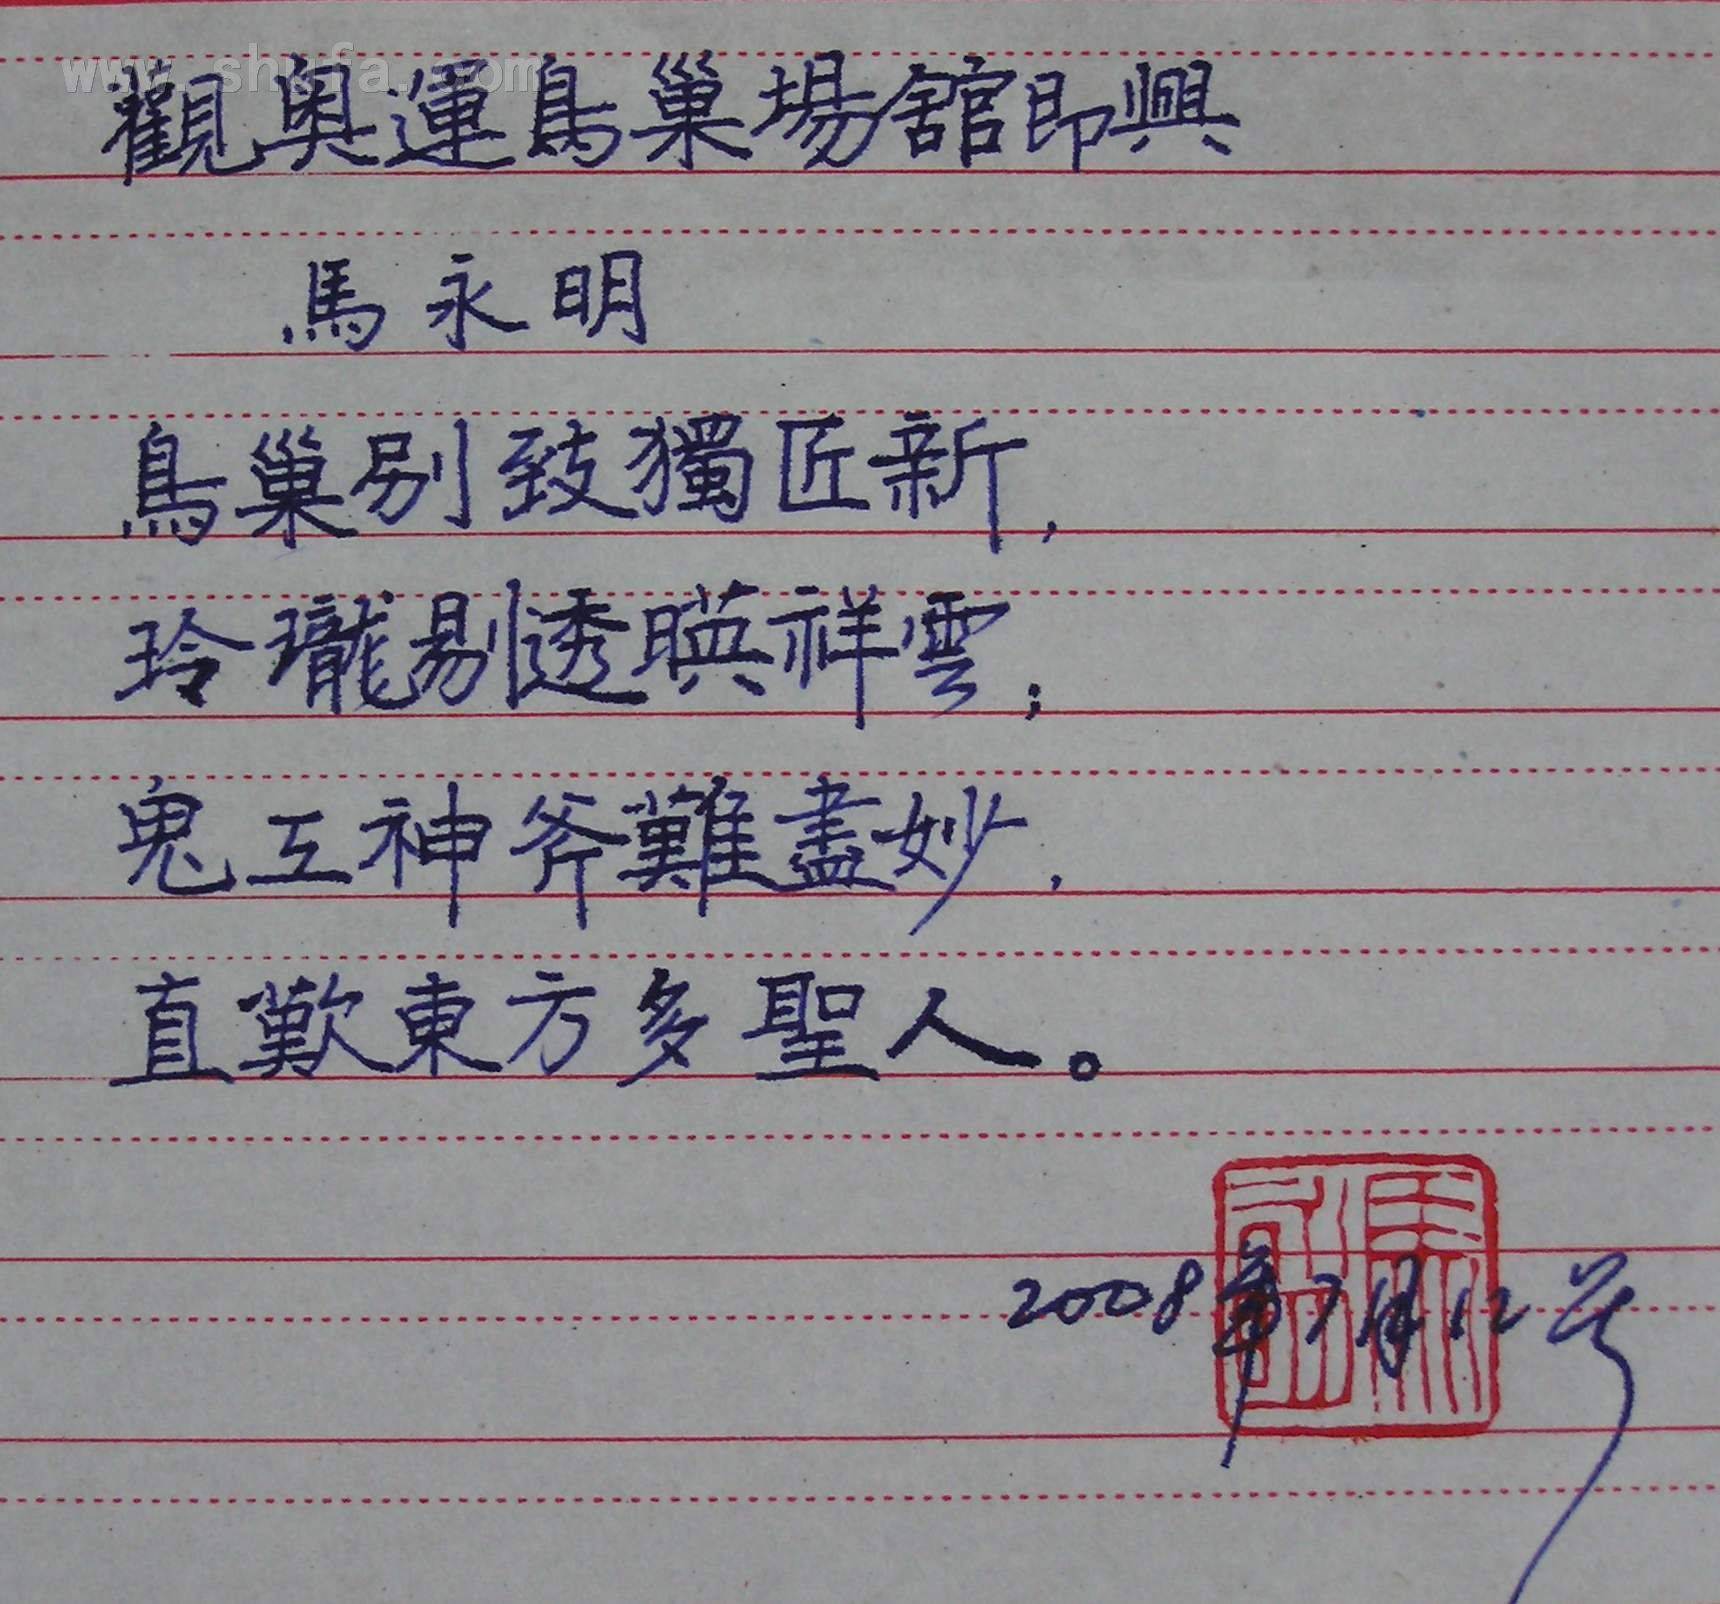 www.shufa.com
觀奥運鳥巢場舘即興
馬永明
鳥巢别致獨匠新，
玲瓏剔透暎祥雲；
鬼工神斧難盡妙，
直歎東方多聖人。
2008年7月12